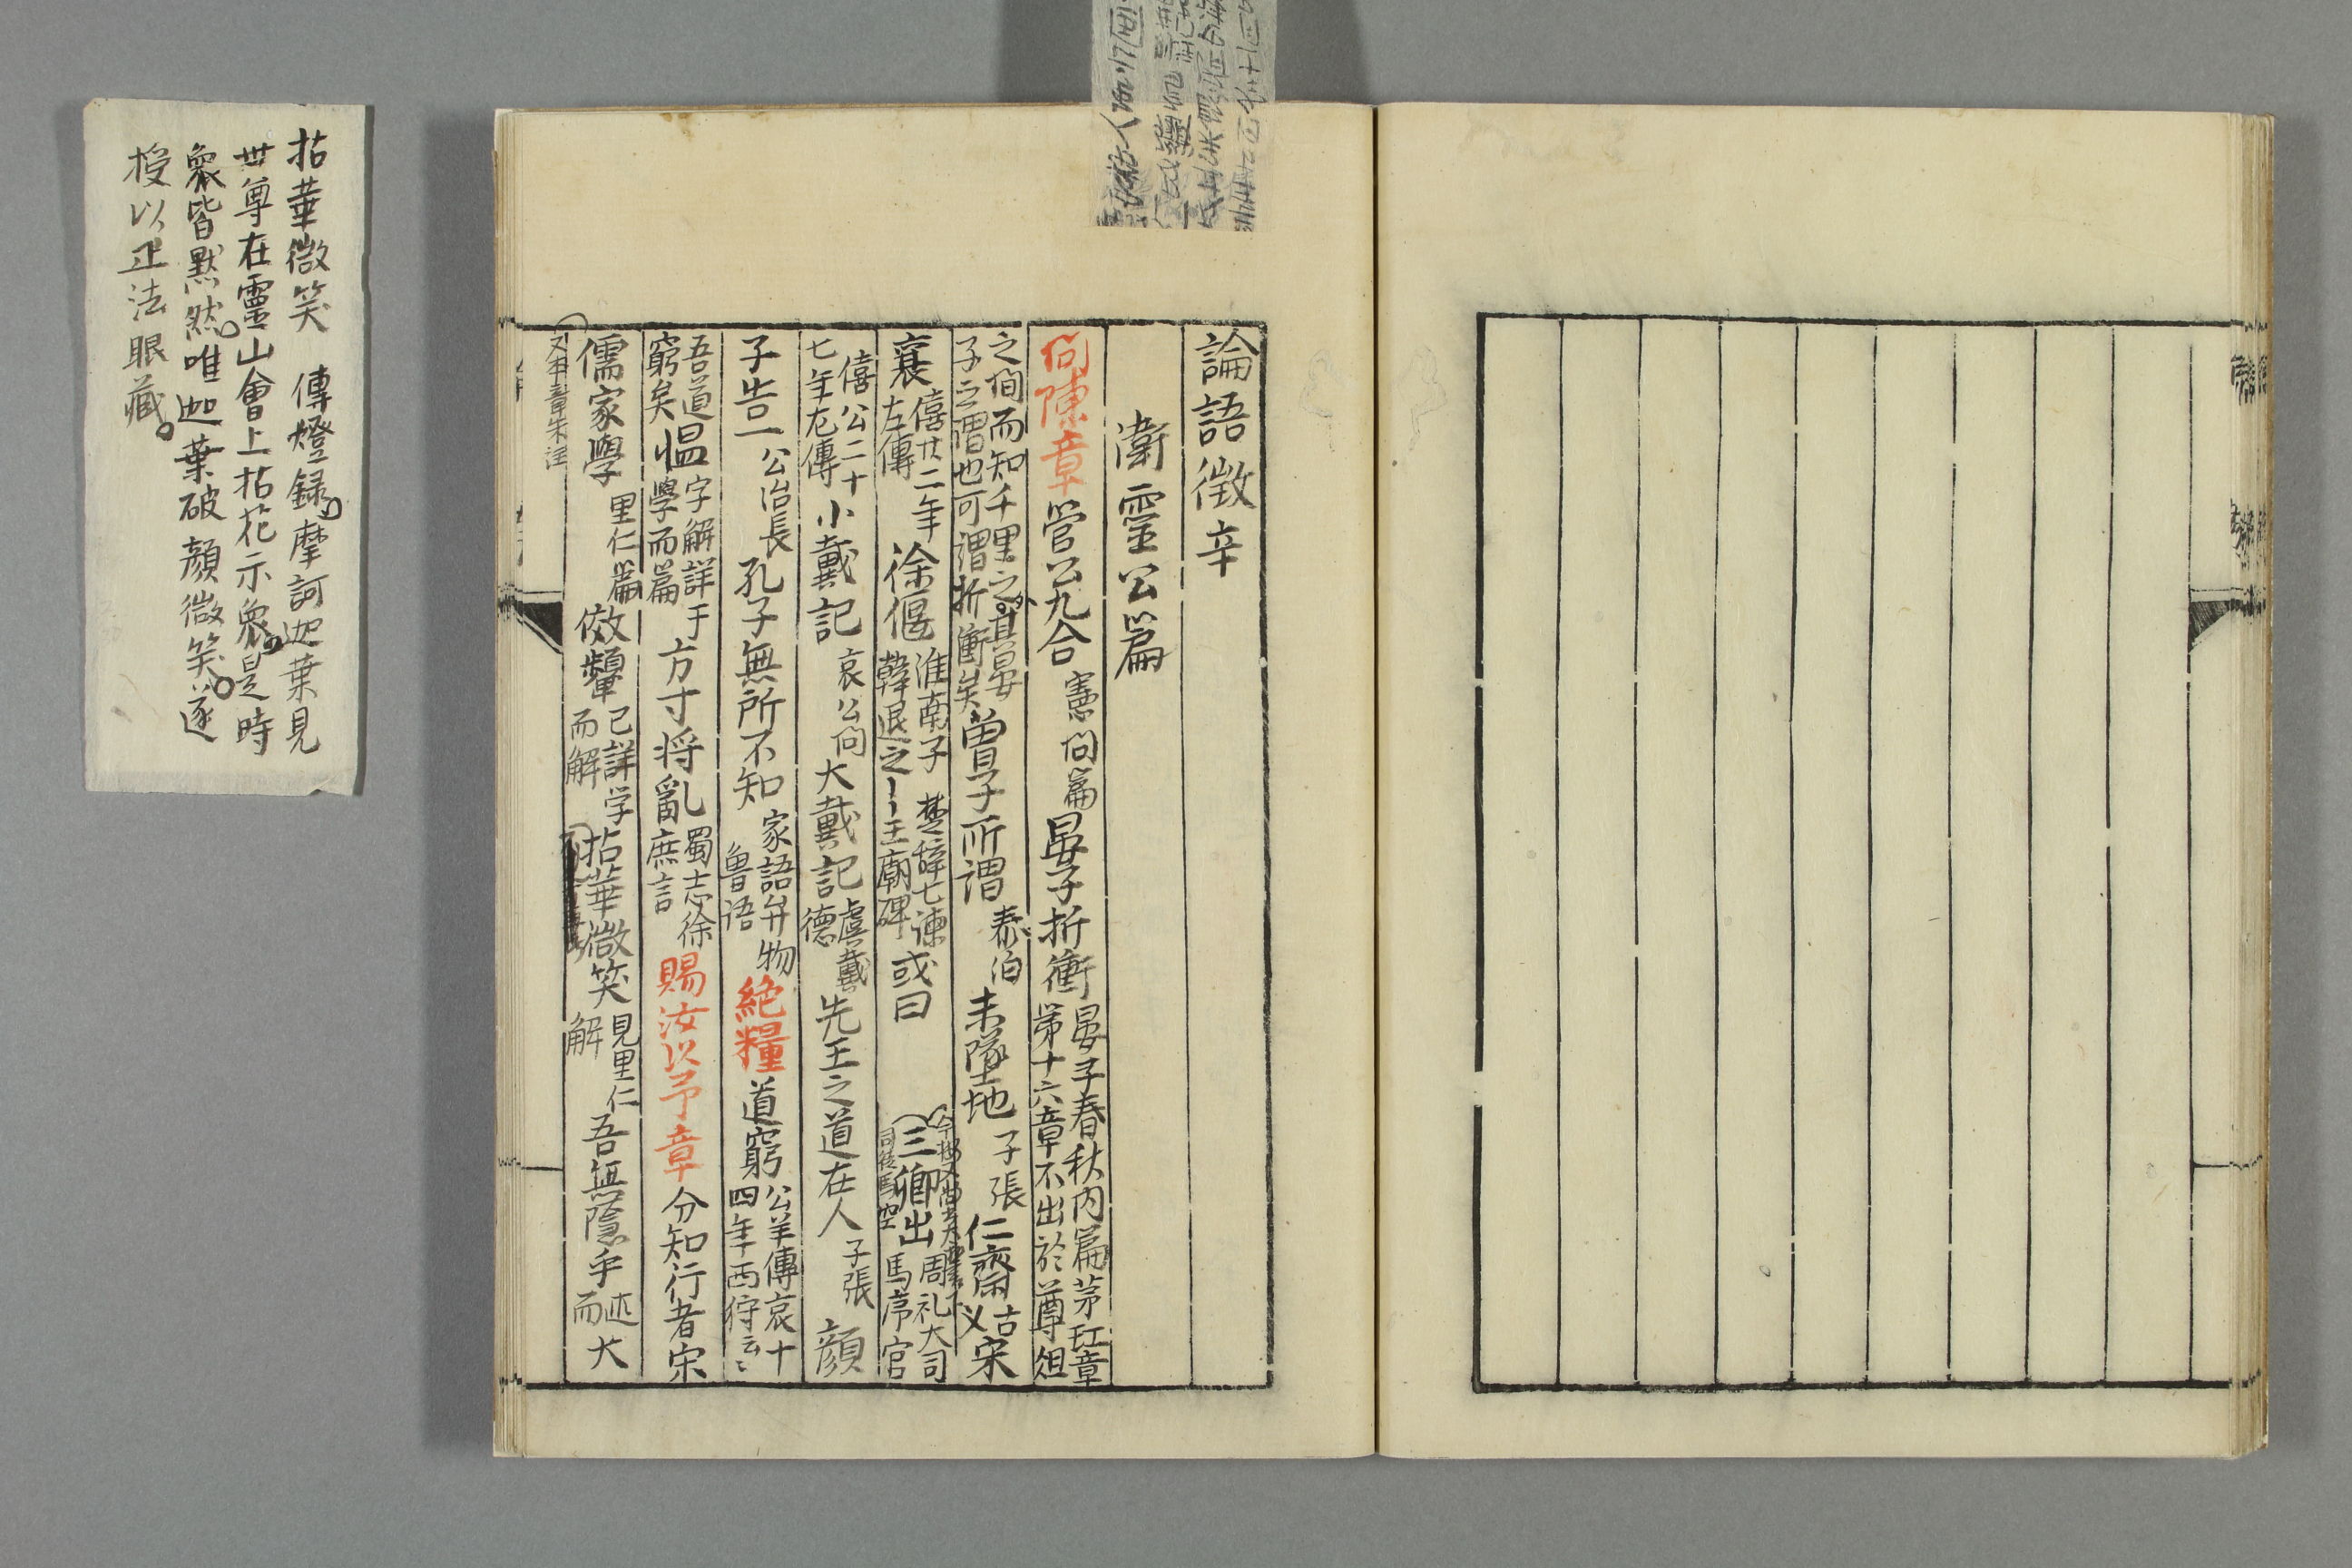 論語徴辛
衛靈公篇
問陳章管公九合憲問篇晏子折衝晏子春秋内篇茅𤣥章第十六章不出於尊俎
之間而知千里之其晏子之謂也可謂折衝矣曽子所謂泰伯未墜地子張仁齋古义宋
襄僖廿二年左傳徐偃淮南子楚辞七諫韓退之王廟碑或曰三卿出周礼大司馬序官
僖公二十七年左傳小戴記哀公問大戴記虞戴德先王之道在人子張顔
子告一公冶長孔子無所不知家語弁物魯语絶糧道窮公羊傳哀十四年西狩云〻
吾道窮矣愠字解詳于學而篇方寸将亂蜀志徐庶言賜汝以予章分知行者宋
儒家學里仁篇傚顰已詳学而解拈華微笑見里仁解吾無隠乎述而大
又本章朱注
拈華微笑　傳燈録摩訶迦葉見
世尊在靈山會上拈花示衆是時
衆皆黙然唯迦葉破顔微笑遂
授以正法眼藏